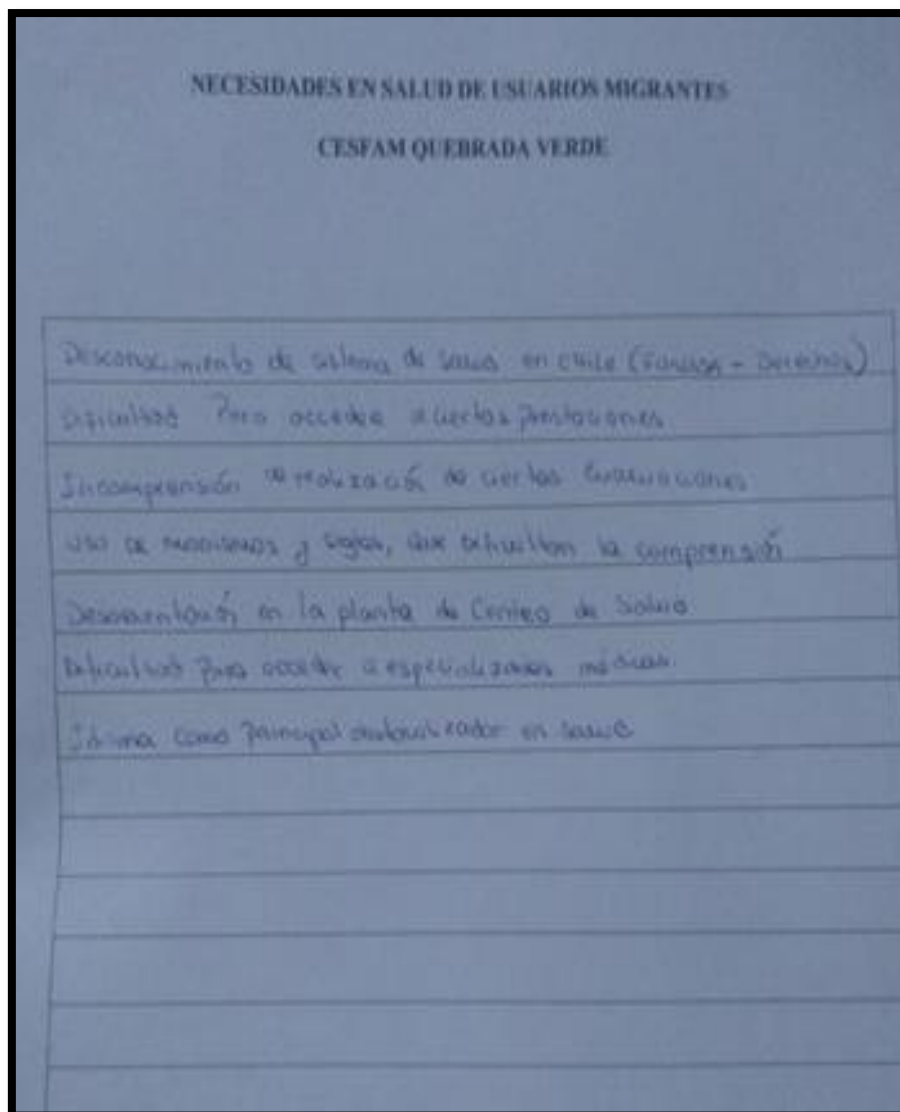 NECESIDADES EN SALUD DE USUARIOS MIGRANTES
CESFAM QUEBRADA VERDE
Desconocimiento de sistema de salud en Chile (Fonasa - Derechos)
Dificultad Para acceder a ciertas prestaciones
Incomprensión de realización de ciertas Evaluaciones
USO DE modismos y siglas, que dificultan la comprensión
Desorientación en la planta de Centro de Salud
Dificultad para acceder a especialidades médicas
Idioma como Principal obstaculizador en salud